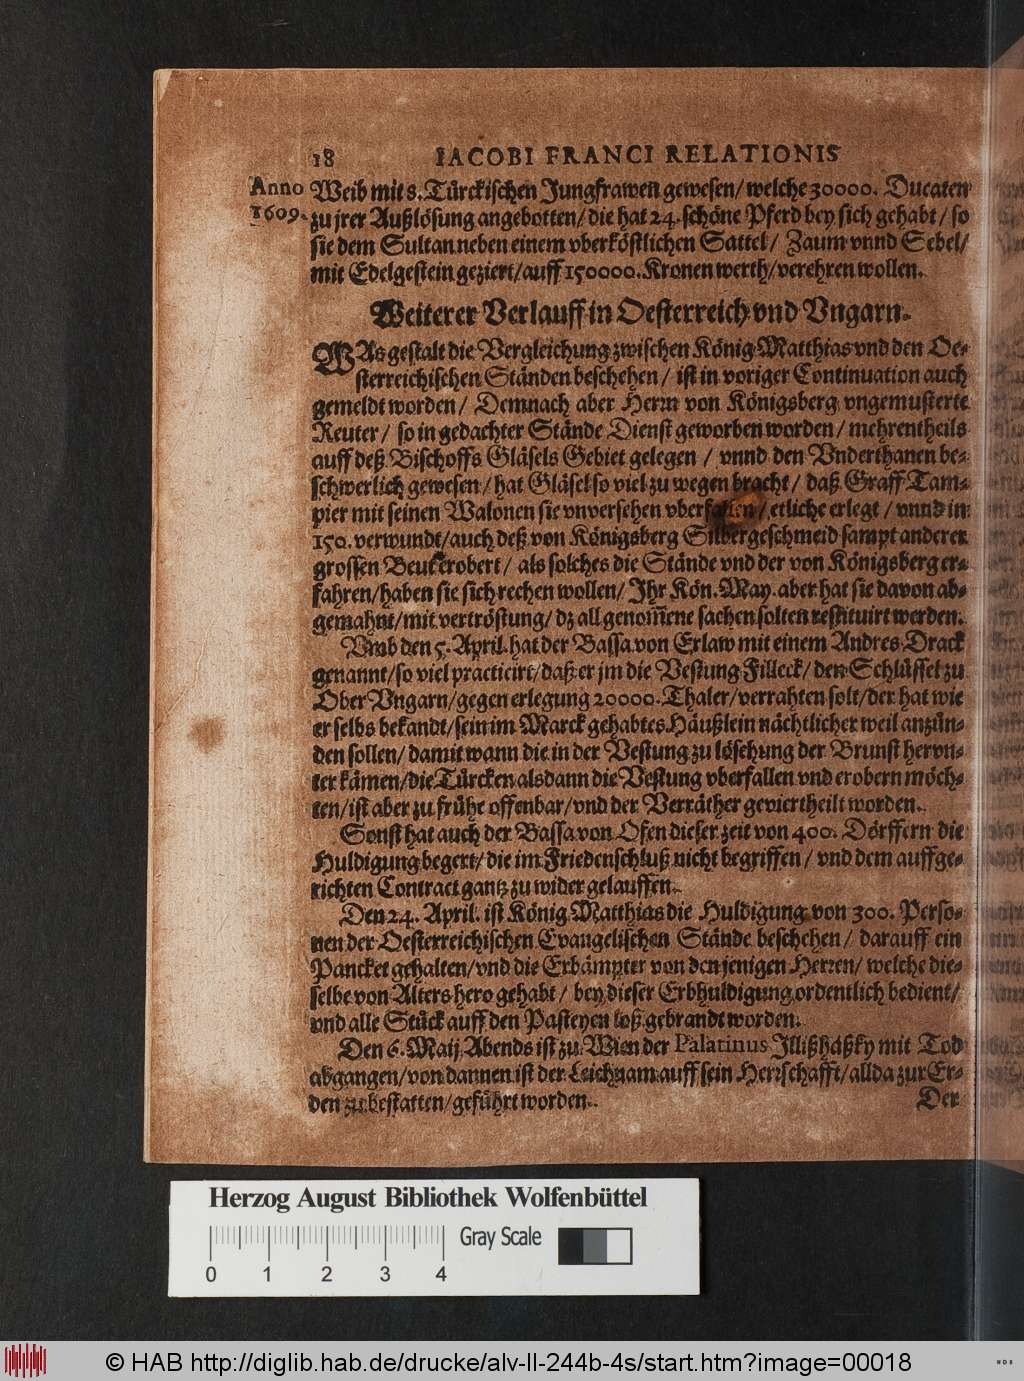 18 IACOBI FRANCI RELATIONIS
Anno
1609.
Weib mit 8. Türckischen Jungfrawen gewesen/ welche 30000. Ducaten
zu jrer Außlösung angebotten/ die hat 24. schöne Pferd bey sich gehabt/ so
sie dem Sultan neben einem vberköstlichen Sattel/ Zaum vnnd Sebel/
mit Edelgestein geziert/ auff 150000. Kronen werth/ verehren wollen.
Weiterer Verlauff in Oesterreich vnd Vngarn.
WAs gestalt die Vergleichung zwischen König Matthias vnd den Oe-
sterreichischen Ständen beschehen/ ist in voriger Continuation auch
gemeldt worden/ Demnach aber Herrn von Königsberg vngemusterte
Reuter/ so in gedachter Stände Dienst geworben worden/ mehrentheils
auff deß Bischoffs Gläsels Gebiet gelegen/ vnnd den Vnderthanen be-
schwerlich gewesen/ hat Gläsel so viel zu wegen bracht/ daß Graff Tam-
pier mit seinen Walonen sie vnversehen vberfallen/ etliche erlegt/ vnnd in
150. verwundt/ auch deß von Königsberg Silbergeschmeid sampt anderer
grossen Beut erobert/ als solches die Stände vnd der von Königsberg er-
fahren/ haben sie sich rechen wollen/ Ihr Kön. May. aber hat sie davon ab-
gemahnt/ mit vertröstung/ dz all genom̅ene sachen solten restituirt werden.
Vmb den 5. April. hat der Bassa von Erlaw mit einem Andres Drack
genannt/ so viel practicirt/ daß er jm die Vestung Filleck/ den Schlüssel zu
Ober Vngarn/ gegen erlegung 20000. Thaler/ verrahten solt/ der hat wie
er selbs bekandt/ sein im Marck gehabtes Häußlein nächtlicher weil anzün-
den sollen/ damit wann die in der Vestung zu löschung der Brunst hervn-
ter kämen/ die Türcken alsdann die Vestung vberfallen vnd erobern möch-
ten/ ist aber zu frühe offenbar/ vnd der Verräther geviertheilt worden.
Sonst hat auch der Bassa von Ofen dieser zeit von 400. Dörffern die
Huldigung begert/ die im Friedenschluß nicht begriffen/ vnd dem auffge-
richten Contract gantz zu wider gelauffen.
Den 24. April. ist König Matthias die Huldigung von 300. Perso-
nen der Oesterreichischen Evangelischen Stände beschehen/ darauff ein
Pancket gehalten/ vnd die Erbämpter von den jenigen Herren/ welche die-
selbe von Alters hero gehabt/ bey dieser Erbhuldigung ordentlich bedient/
vnd alle Stück auff den Pasteyen loß gebrandt worden.
Den 6. Maij Abends ist zu Wien der Palatinus Illißhäßky mit Tod
abgangen/ von dannen ist der Leichnam auff sein Herrschafft/ allda zur Er-
den zu bestatten/ geführt worden.
Der
Herzog August Bibliothek Wolfenbüttel
Gray Scale
0 1 2 3 4
© HAB http://diglib.hab.de/drucke/alv-ll-244b-4s/start.htm?image=00018